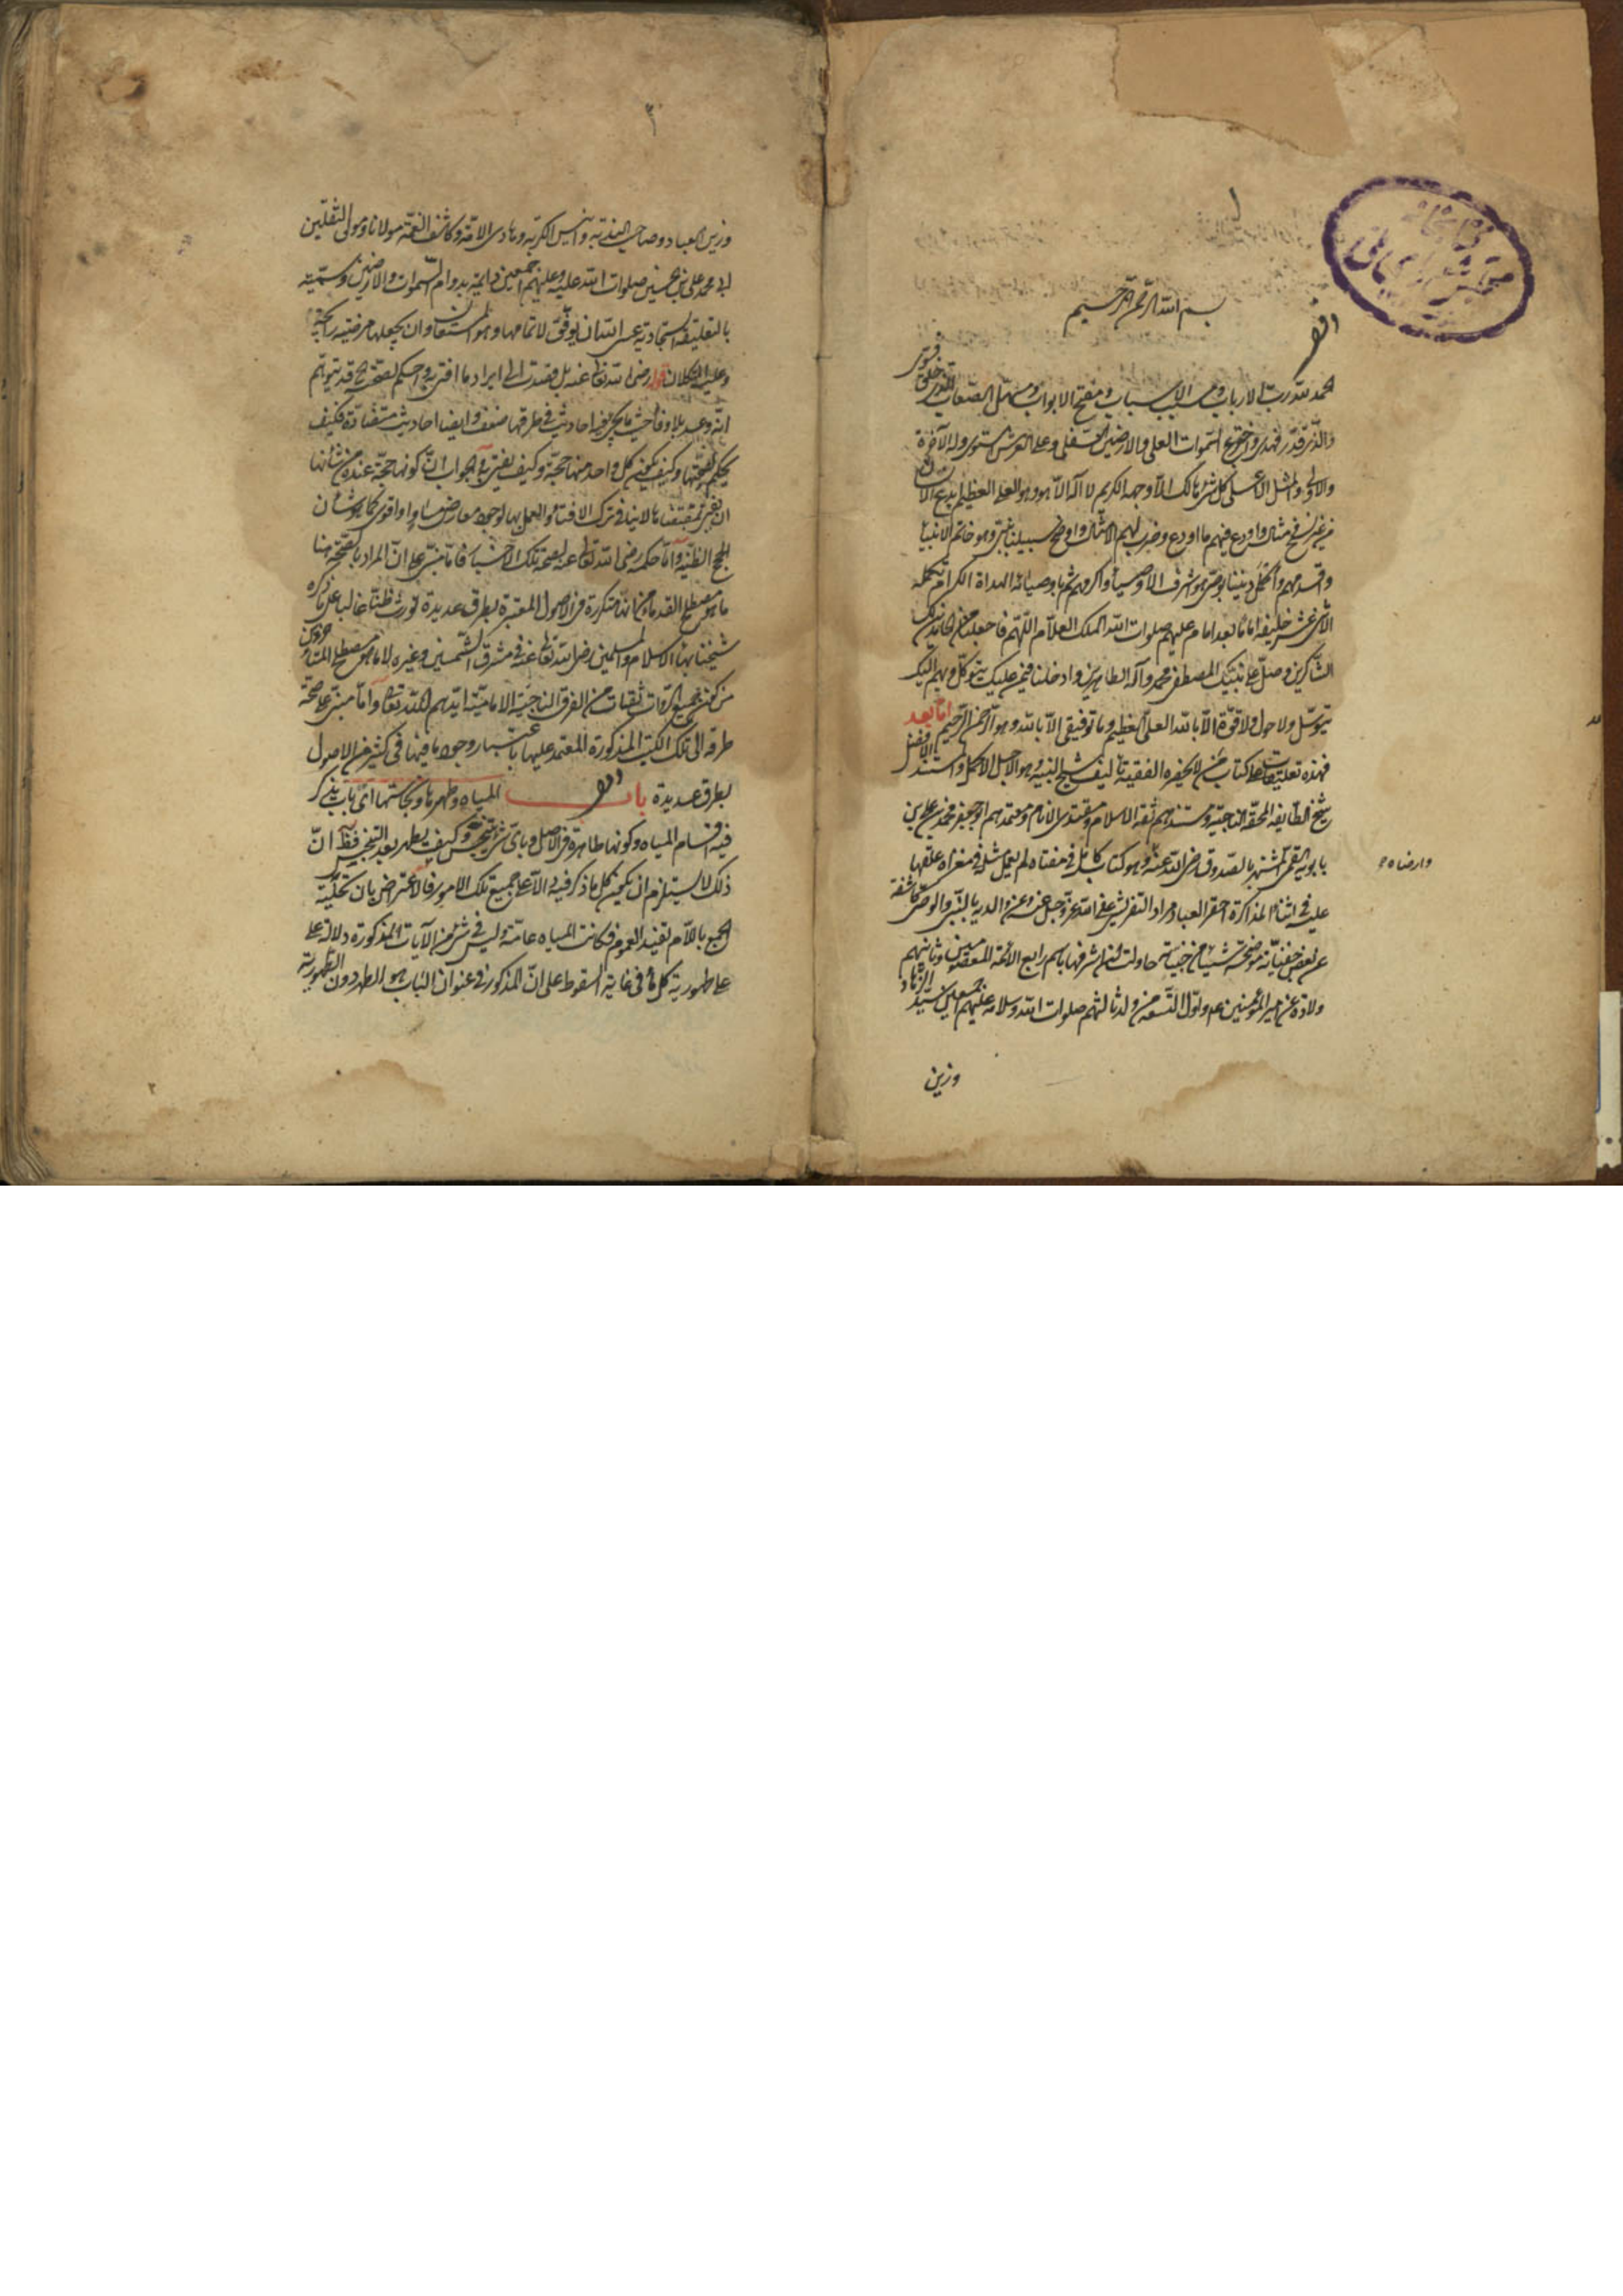 بسم الله الرحمن الرحيم
الحمد لله رب الارباب ومسبب الاسباب ومفتح الابواب ومسهل الصعاب الذى خلق فسوى
والذى قدر فهدى السموات العلى والارضين السفلى وعلى العرش استوى وله الآخرة
والاولى والمثل الاعلى كل شئ هالك الا وجهه الكريم لا اله الا هو وهو العلى العظيم ابدع الانسان
من غير مثال واودع فيهم ما اودع وضرب لهم الامثال واوضح سبيلنا بنبى هو خاتم الانبياء
واقدمهم واكمل ديننا بوصى هو اشرف الاوصياء واكرمهم ثم باوصيائه الهداة الكرام تكمله
الاثنى عشر خليفه اماما بعد امام عليهم صلوات الله الملك العلام اللهم فاجعلنا من الحامدين لك
الشاكرين وصل على نبيك المصطفى محمد وآله الطاهرين وادخلنا فيمن عليك يتوكل وبهم اليك
يتوسل ولا حول ولا قوة الا بالله العلى العظيم وما توفيقى الا بالله وهو الرحمن الرحيم اما بعد
فهذه تعليقات على كتاب من لا يحضره الفقيه تأليف الشيخ النبيه هو الاجل الاكمل واستند الافضل
شيخ الطايفه المحقه الناجية ومستندهم ثقه الاسلام ومقتدى الانام ومعتمدهم ابو جعفر محمد بن على بن
بابويه القمى المشتهر بالصدوق رضى الله عنه وهو كتاب كامل فى معناه لم يعمل مثله فى مغزاه علقها
عليه فى اثناء المذاكرة احقر العباد مراد التفرشى عفى الله عز وجل عنه وعن والديه بالنبى والوصى كاشفة
عن بعض خفياته موضحة شيئا من خبيئاته حاولت ان اشرفها باسم رابع الائمة المعصومين وثانيهم
ولادة عن امير المؤمنين عم واول التسعه من ولد ثالثهم صلوات الله وسلامه عليهم اجمعين سيد الزهاد
وزين
وزين العباد وصاحب الندبة وانيس الكربه وهادى الامة وكاشف الغمة مولانا ومولى الثقلين
ابى محمد على بن الحسين صلوات الله عليه وعليهم اجمعين دايمة بدوام السموات والارضين وسميته
بالتعليقة السجادية عسى الله ان يوفق لاتمامها وهو المستعان وان يجعلها مرضيه
وعليه التكلان قوله رضى الله تعالى عنه بل قصدت الى ايراد ما افتى به واحكم بصحته قد يتوهم
انه وعد بلا وفاء حيث فيه احاديث فى طرقها ضعف وايضا احاديث متضادة فكيف
يحكم بصحتها وكيف يكون كل واحد منها حجة وكيف يفتى به الجواب ان كونها حجة عنده من شأنها
ان يفتى بمقتضاها لا ينافى ترك الافتاء والعمل بها لوجود معارض مساو او اقوى كما هو شأن
الحجج الظنيه واما حكمه رضى الله تعالى عنه بصحة تلك الاخبار فاما مبنى على ان المراد بالصحة هنا
ما هو مصطلح القدماء من انها متكررة فى الاصول المعتبرة بطرق عديدة تورث ظنا غالبا على ما ذكره
شيخنا بهاء الاسلام والمسلمين رضى الله تعالى عنه فى مشرق الشمسين وغيره لا ما هو مصطلح المتاخرين
من كون جميع الرواة ثقات من الفرق الناجية الامامية ايدهم الله تعالى واما مبنى على صحة
طرقه الى تلك الكتب المذكورة المعتمد عليها باعتبار وجود ما فيها فى كثير من الاصول
بطرق عديدة باب المياه وطهرها ونجاستها اى باب يذكر
فيه اقسام المياه وكونها طاهرة فى الاصل وباى شئ تنجس وكيف يطهر بعد التنجس
ذلك لا يستلزم ان يكون كل ما ذكر فيه دالا على جميع تلك الامور فالاعتراض بان تحلية
الجمع باللام تفيد العموم فكانت المياه عامة وليس فى شئ من الآيات المذكورة دلالة على
على طهورية كل ماء فى غاية السقوط على ان المذكور فى عنوان الباب هو الطهر دون الطهورية